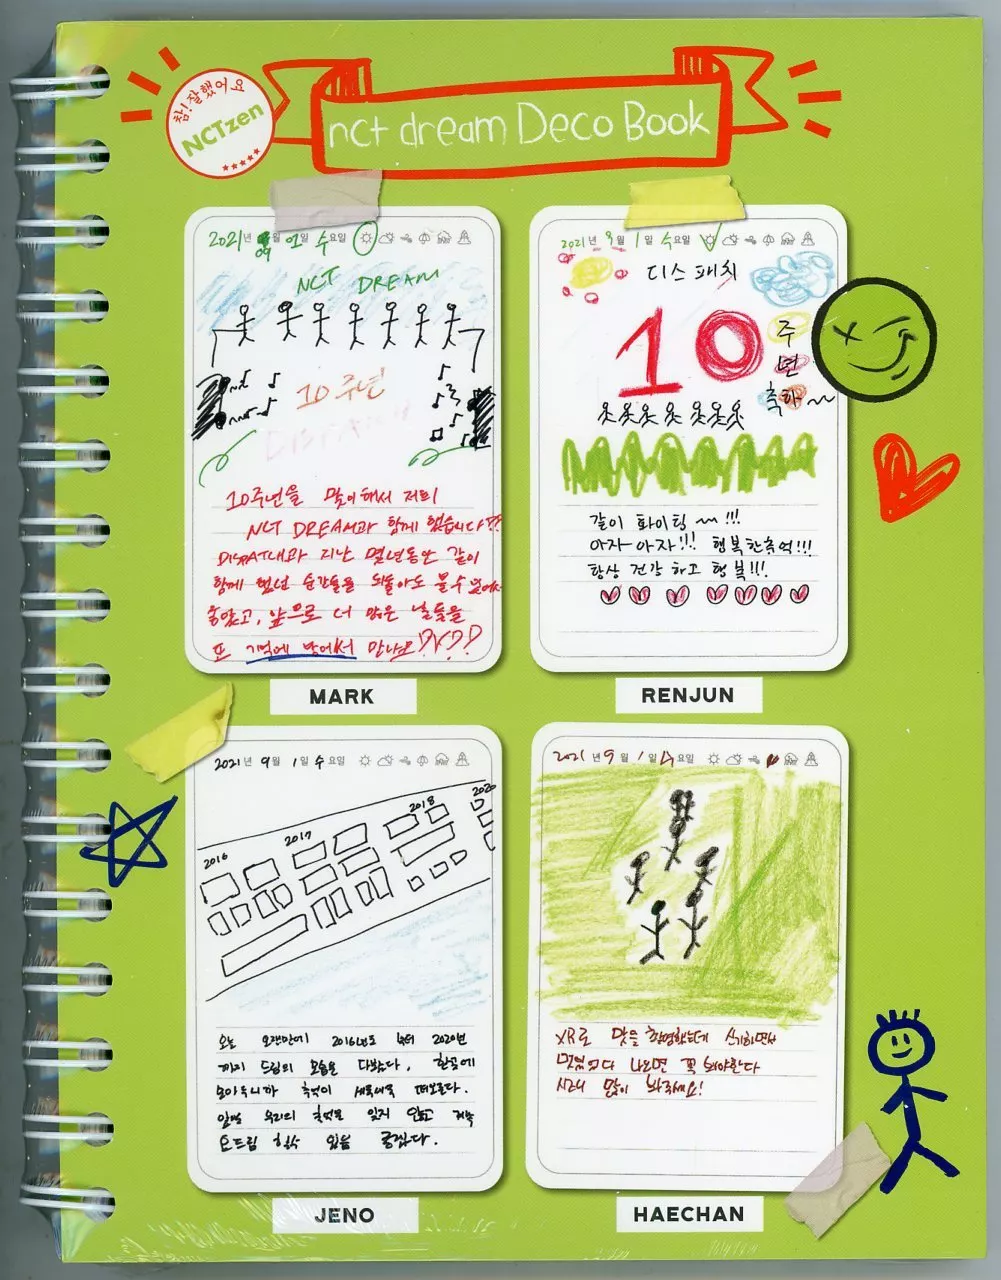 참! 잘했어요
NCTzen
nct dream Deco Book
2021년 09월 01일 수요일
NCT DREAM
10주년
10주년을 맞이해서 저희
NCT DREAM과 함께 했습니다??
DISPATCH과 지난 몇년동안 같이
함께 했던 순간들을 되돌아도 볼 수 있어서
좋았고, 앞으로 더 많은 날들을
또 기억에 담아서 만나요
MARK
2021년 9월 1일 수요일
디스패치
10주년
축하~~
같이 화이팅~ !!!
아자-아자!!! 행복한추억!!!
항상 건강 하고 행복!!!
RENJUN
2021년 9월 1일 수요일
2016 2017 2018 2020
오늘 오랜만에 2016년도 부터 2020년
까지 드림의 모습을 다봤다. 한곳에
모아두니까 추억이 새록새록 떠오른다.
앞으로 우리의 추억을 잊지 않고 계속
드림 있음 좋겠다.
JENO
2021년 9월 1일 수요일
XR로 맞을 촬영했는데 신기하면서
나오면 꼭 봐야한다
많이 봐주세요!
HAECHAN